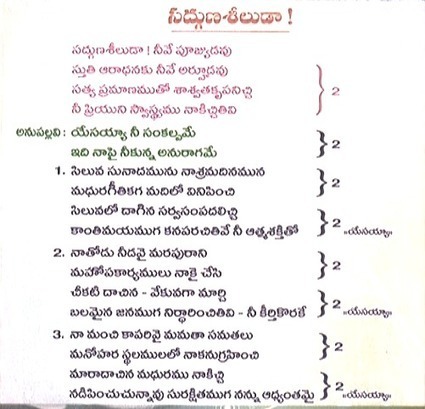 సద్గుణశీలుడా !
సద్గుణశీలుడా ! నీవే పూజ్యుడవు
స్తుతి ఆరాధనకు నీవే అర్హూడవు
సత్య ప్రమాణముతో శాశ్వతకృపనిచ్చి } 2
నీ ప్రియుని స్వాస్థ్యము నాకిచ్చితివి
అనుపల్లవి : యేసయ్యా నీ సంకల్పమే
ఇది నాపై నీకున్న అనురాగమే } 2
1. సిలువ సునాదమును నాశ్రమదినమున
మధురగీతికగ మదిలో వినిపించి } 2
సిలువలో దాగిన సర్వసంపదలిచ్చి
కాంతిమయముగ కనపరచితివే నీ ఆత్మశక్తితో } 2 "యేసయ్యా"
2. నాతోడు నీడవై మరపురాని
మహోపకార్యములు నాకై చేసి } 2
చీకటి దాచిన - వేకువగా మార్చి
బలమైన జనముగ నిర్ధారించితివి - నీ కీర్తికొరకే } 2 "యేసయ్యా"
3. నా మంచి కాపరివై మమతా సమతలు
మనోహర స్థలములలో నాకనుగ్రహించి } 2
మారాదాచిన మధురము నాకిచ్చి
నడిపించుచున్నావు సురక్షితముగ నన్ను ఆధ్యంతమై } 2 "యేసయ్యా"